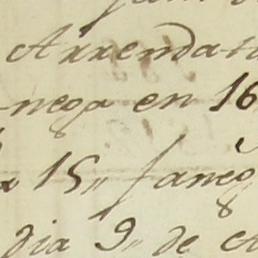 Arrenda
nega en 16
15,, faneg
dia 9,, de